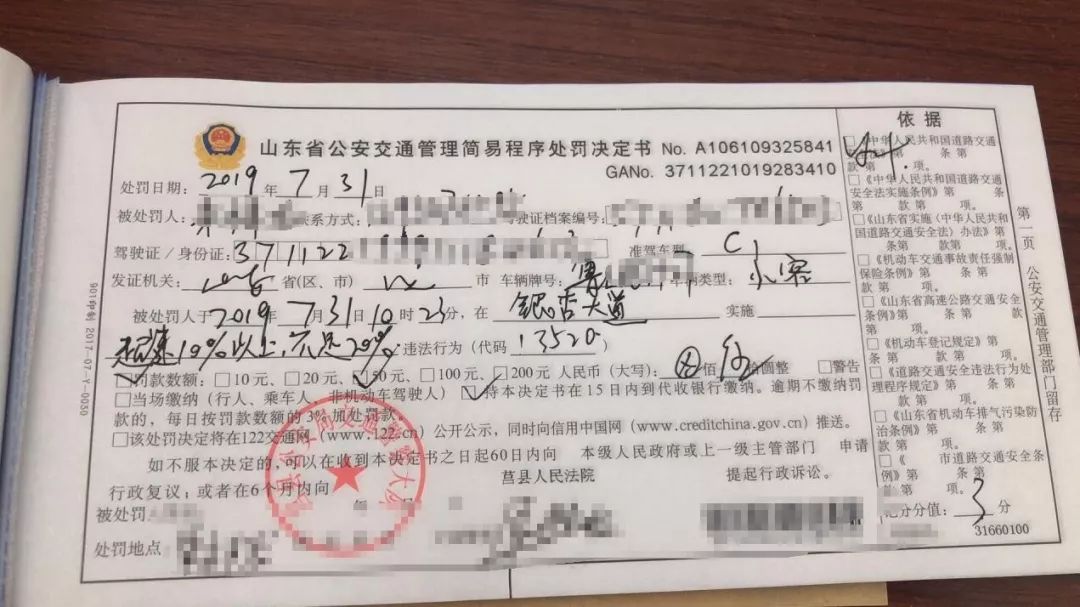 山东省公安交通管理简易程序处罚决定书 No. A106109325841
GANo. 3711221019283410
处罚日期: 2019 年 7 月 31 日
被处罚人: 联系方式: 驾驶证档案编号:
驾驶证/身份证: 371122 准驾车型 C1
发证机关: 山东 省(区、市) 市 车辆牌号: 鲁 车辆类型: 小客
被处罚人于 2019 年 7 月 31 日 10 时 23 分, 在 银杏大道 实施
超速10%以上,不足20% 违法行为 (代码) 13520
罚款数额: □10元、□20元、☑50元、□100元、□200元 人民币(大写): 佰 伍 拾圆整 □警告
□当场缴纳 (行人、乘车人、非机动车驾驶人) ☑持本决定书在15日内到代收银行缴纳。逾期不缴纳罚
款的,每日按罚款数额的3%加处罚款。
□该处罚决定将在122交通网 (www.122.cn) 公开公示,同时向信用中国网 (www.creditchina.gov.cn) 推送。
如不服本决定的,可以在收到本决定书之日起60日内向 本级人民政府或上一级主管部门 申请
行政复议;或者在6个月内向 莒县人民法院 提起行政诉讼。
被处罚
处罚地点
依据
□《中华人民共和国道路交通
法》第 条 第
款 第 项。
□《中华人民共和国道路交通
安全法实施条例》第 条
第 款第 项。
□《山东省实施〈中华人民共和
国道路交通安全法〉办法》第
条第 款第 项。
□《机动车交通事故责任强制
保险条例》第 条第
款 第 项。
□《山东省高速公路交通安全
条例》第 条第 款
第 项。
□《机动车登记规定》第
条第 款第 项。
□《道路交通安全违法行为处
理程序规定》第 条第
款第 项。
□《山东省机动车排气污染防
治条例》第 条第
款 第 项。
□《 市道路交通安全条
例》第 条第
款 第 项。
记分分值: 3 分
31660100
第一页 公安交通管理部门留存
901印制 2017-07-Y-0030